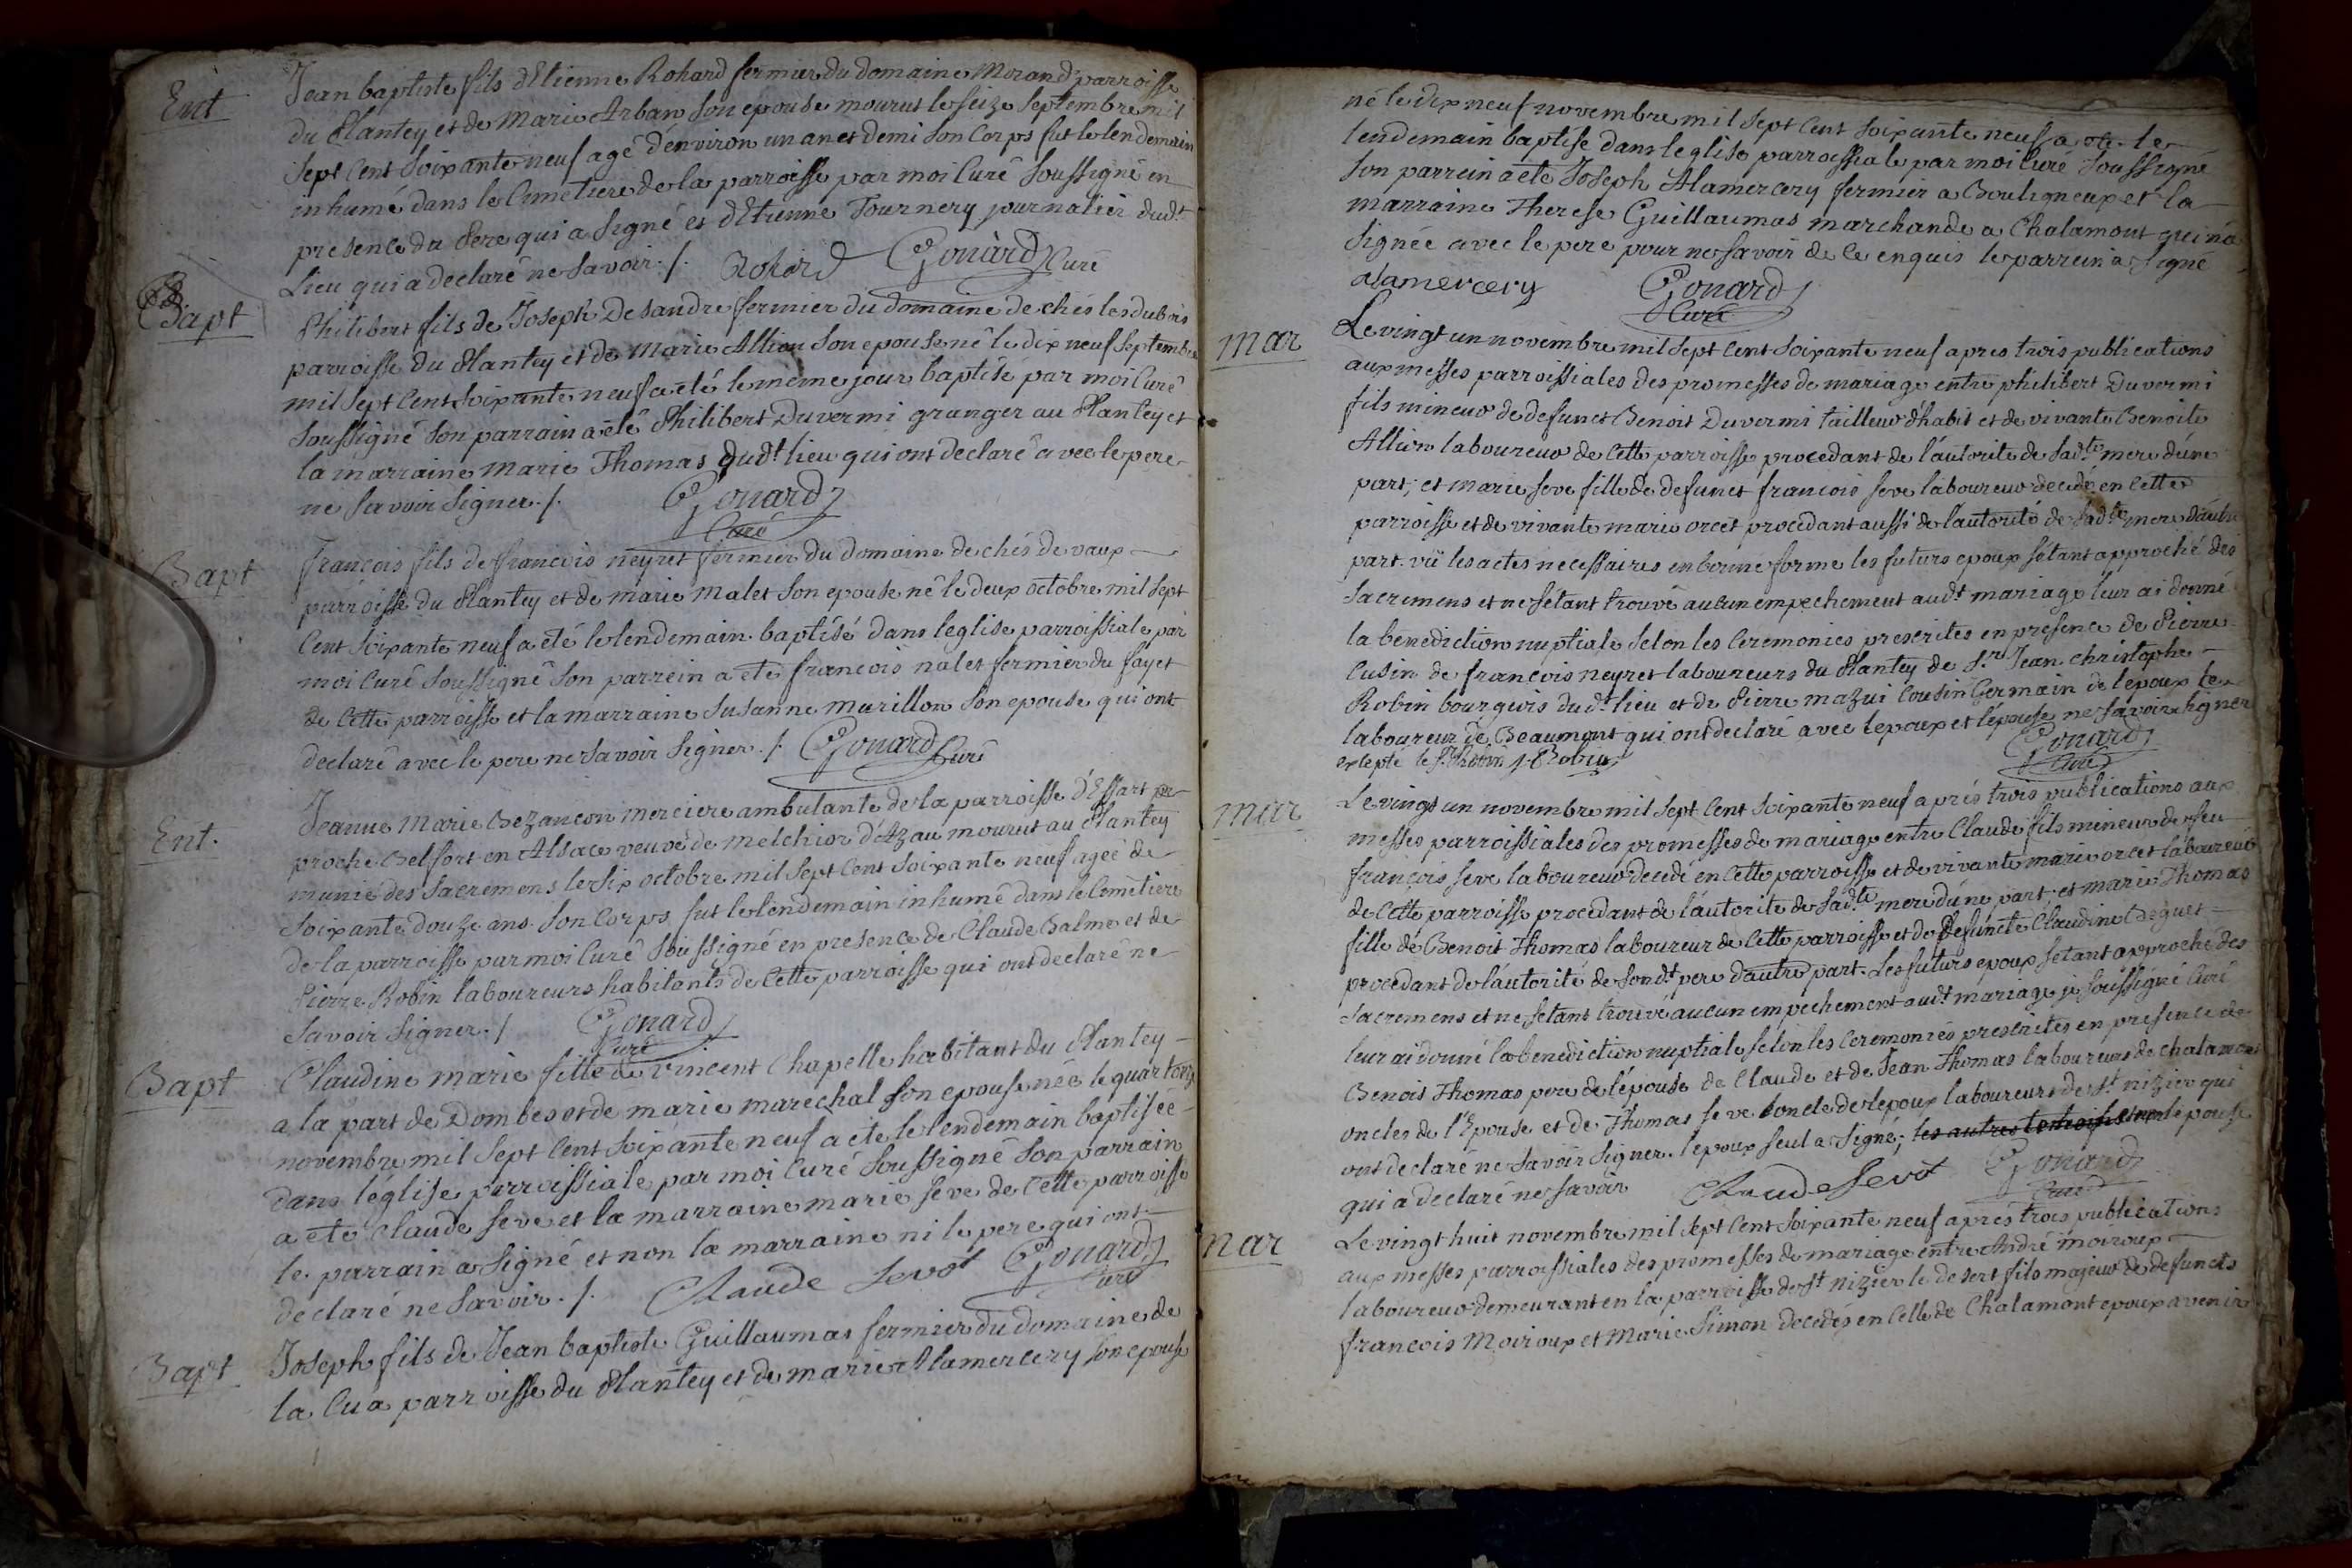 Ent
Jean baptiste fils d'Etienne Rohard fermier du domaine Morand parroisse
du Plantey et de Marie Arban son epouse mourut le seize septembre mil
sept cent soixante neuf agé d'environ un an et demi son corps fut le lendemain
inhumé dans le cimetiere de la parroisse par moi curé soussigné en
presence du pere qui a signé et d'Etienne Tournery journalier dudt
lieu qui a declaré ne savoir ./. Rohard Gouard curé
Bapt
Philibert fils de Joseph Desandre fermier du domaine de chés les dubois
parroisse du Plantey et de Marie Allion son epouse né le dix neuf septembre
mil sept cent soixante neuf a eté le meme jour baptisé par moi curé
soussigné son parrain a eté Philibert Duvermi granger au Plantey et
la marraine Marie Thomas dudt lieu qui ont declaré avec le pere
ne savoir signer ./. Gouard
Curé
Bapt
françois fils de françois neyret fermier du domaine de chés de vaux
parroisse du Plantey et de marie Malet son epouse né le deux octobre mil sept
cent soixante neuf a eté le lendemain baptisé dans leglise parroissiale par
moi curé soussigné son parrein a eté francois nalet fermier du fayet
de cette parroisse et la marraine susanne murillon son epouse qui ont
declaré avec le pere ne savoir signer ./. Gouard curé
Ent.
Jeanne Marie Bezancon merciere ambulante de la parroisse d'Essart
proche Belfort en Alsace veuve de melchior d'Azau mourut au Plantey
munie des sacremens le six octobre mil sept cent soixante neuf ageé de
soixante douze ans. son corps fut le lendemain inhumé dans le cimêtiere
de la parroisse par moi curé soussigné en presence de Claude Balme et de
Pierre Robin laboureurs habitants de cette parroisse qui ont declaré ne
savoir signer ./. Gouard
Curé
Bapt
Claudine marie fille de vincent Chapelle habitant du Plantey
a la part de Dombes et de marie marechal son epouse née le quatorze
novembre mil sept cent soixante neuf a ete le lendemain baptisee
dans l'église parroissiale par moi curé soussigné son parrain
a ete Claude seve et la marraine marie seve de cette parroisse
le parrain a signé et non la marraine ni le pere qui ont
declaré ne savoir ./. Claude Sevot Gouard
curé
Bapt
Joseph fils de Jean baptiste Guillaumas fermier du domaine de
la Cua parroisse du Plantey et de marie Alamercery son epouse
né le dix neuf novembre mil sept cent soixante neuf a ete le
lendemain baptisé dans leglise parroissiale par moi curé soussigné
son parrein a ete Joseph Alamercery fermier a Bouligneux et la
marraine Therese Guillaumas marchande a Chalamont qui n'a
signée avec le pere pour ne savoir de ce enquis le parrein a signé
alamercery Gouard
Curé
mar
Le vingt un novembre mil sept cent soixante neuf apres trois publications
aux messes parroissiales des promesses de mariage entre philibert Duvermi
fils mineur de defunct Benoit Duvermi tailleur d'habit et de vivante Benoite
Allion laboureur de cette parroisse procedant de l'autorite de sadte mere d'une
part; et marie seve fille de defunct francois seve laboureur decedé en cette
parroisse et de vivante marie orcet procedant aussi de l'autorité de sadte mere d'autre
part. vü les actes necessaires en bonne forme les futurs epoux s'étant approché des
sacremens et ne s'étant trouvé aucun empechement audt mariage leur ai donné
la benediction nuptiale selon les ceremonies prescrites en presence de Pierre
Cusin de françois neyret laboureurs du Plantey de Sr Jean christophe
Robin bourgeois dudt lieu et de Pierre mazui cousin germain de lepoux
laboureur de Beaumont qui ont declaré avec lepoux et l'épouse ne savoir signer
excepté le Sr Robin J. C Robin Gouard
Curé
mar
Le vingt un novembre mil sept cent soixante neuf aprés trois publications aux
messes parroissiales des promesses de mariage entre Claude fils mineur de feu
françois seve laboureur decedé en cette parroisse et de vivante marie orcet laboureur
de cette parroisse procedant de l'autorité de sadte mere d'une part; et marie Thomas
fille de Benoit Thomas laboureur de cette parroisse et de defuncte Claudine Beguet
procedant de l'autorité de sondt pere d'autre part. Les futurs epoux s'etant approché des
sacremens et ne s'étant trouvé aucun empechement audt mariage je soussigné curé
leur ai donné la benediction nuptiale selon les ceremonies prescrites en presence de
Benoit Thomas pere de l'épouse de Claude et de Jean Thomas laboureurs de chalamont
oncles de l'Epouse et de Thomas seve oncle de lepoux laboureurs de St nizier qui
ont declaré ne savoir signer. lepoux seul a signé; les autres et non lepouse
qui a declaré ne savoir Claude Sevot Gouard
Curé
mar
Le vingt huit novembre mil sept cent soixante neuf aprés trois publications
aux messes parroissiales des promesses de mariage entre André moiroux
laboureur demeurant en la parroisse de St nizier le desert fils majeur de defuncts
françois Moiroux et Marie Simon decedés en celle de Chalamont epoux avenir